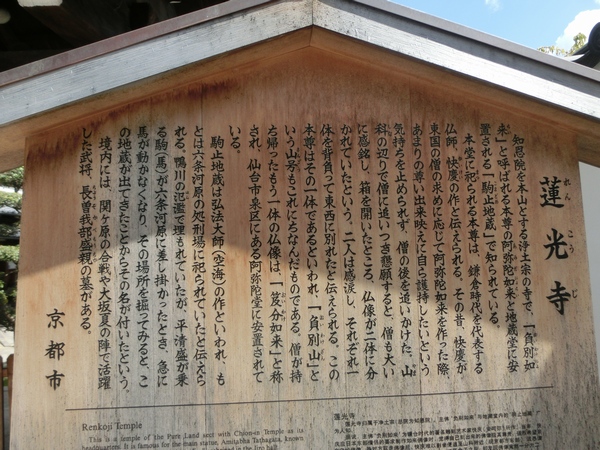 蓮光寺
れんこうじ
知恩院を本山とする浄土宗の寺で、「負別如
来」と呼ばれる本尊の阿弥陀如来と地蔵堂に安
置される「駒止地蔵」で知られている。
本堂に祀られる本尊は、鎌倉時代を代表する
仏師、快慶の作と伝えられる。その昔、快慶が
東国の僧の求めに応じて阿弥陀如来を作った際、
あまりの尊い出来映えに自ら護持したいという
気持ちを止められず、僧の後を追いかけた。山
科の辺りで僧に追いつき懇願すると、僧も大い
に感銘し、箱を開いたところ、仏像が二体に分
かれていたという。二人は感涙し、それぞれ一
体を背負って東西に別れたと伝えられる。この
本尊はその一体であるといわれ、「負別山」と
いう山号もこれにちなんだものである。僧が持
ち帰ったもう一体の仏像は、「笈分如来」と称
され、仙台市泉区にある阿弥陀堂に安置されて
いる。
駒止地蔵は弘法大師（空海）の作といわれ、も
とは六条河原の処刑場に祀られていたと伝えら
れる。鴨川の氾濫で埋もれていたが、平清盛が乗
る駒（馬）が六条河原に差し掛かったとき、急に
馬が動かなくなり、その場所を掘ってみると、こ
の地蔵が出てきたことからその名が付いたという。
境内には、関ヶ原の合戦や大坂夏の陣で活躍
した武将、長曽我部盛親の墓がある。
京都市
Renkoji Temple
This is a temple of the Pure Land sect with Chion-in Temple as its
headquarters. It is famous for the main statue, Amitabha Tathagata, known
蓮光寺